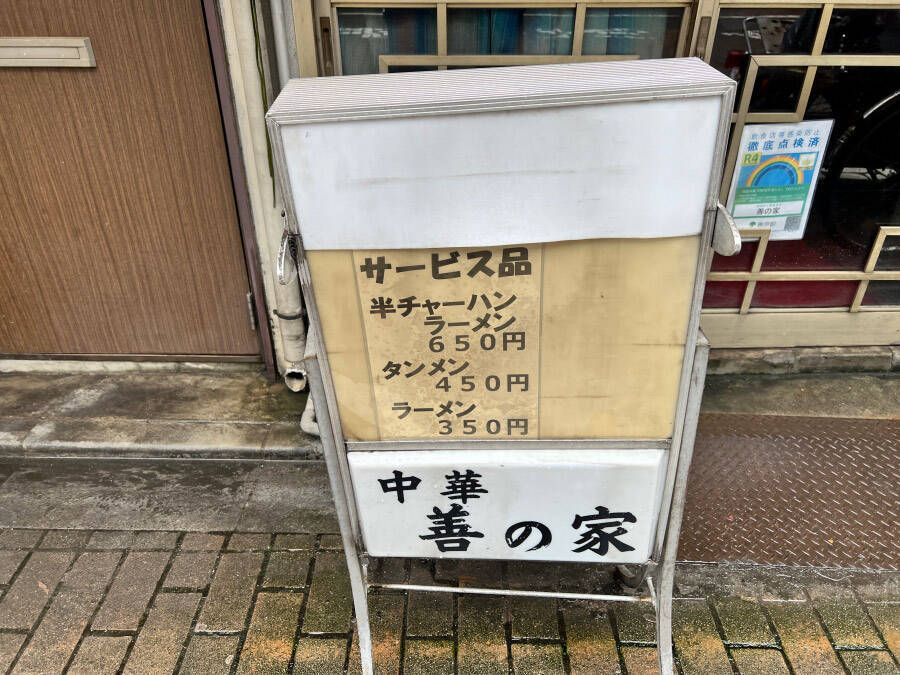 サービス品
半チャーハン
ラーメン
６５０円
タンメン
４５０円
ラーメン
３５０円
中華
善の家
徹底点検済
R4
善の家